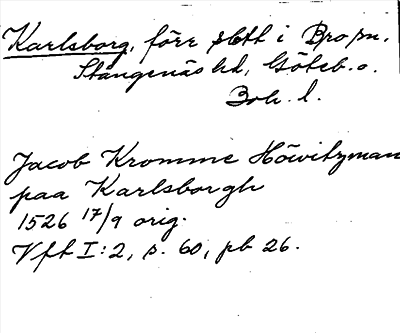 Karlsborg, förr slott i Bro sn,
Stångenäs hd, Göteb. o.
Boh. l.
Jacob Kromme Höwitzman
paa Karlsborgh
1526 17/9 orig.
Vft I:2, s. 60, pb 26.